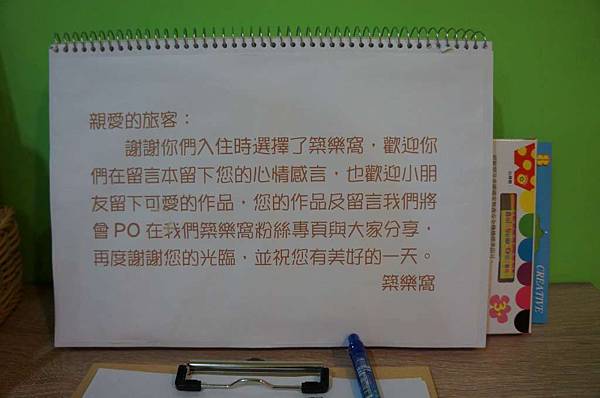 親愛的旅客：
謝謝你們入住時選擇了築樂窩，歡迎你
們在留言本留下您的心情感言，也歡迎小朋
友留下可愛的作品，您的作品及留言我們將
會PO在我們築樂窩粉絲專頁與大家分享，
再度謝謝您的光臨，並祝您有美好的一天。
築樂窩
CREATIVE